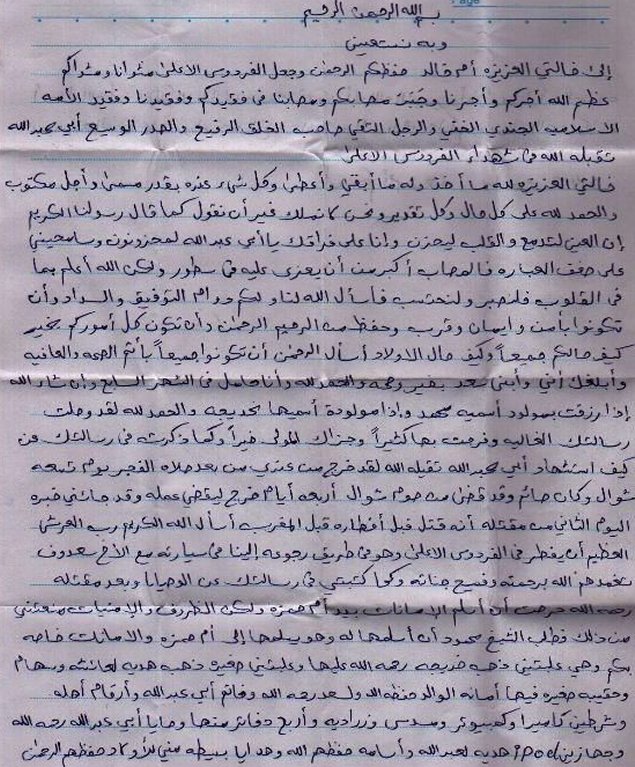 بسم الله الرحمن الرحيم
وبه نستعين
إلى خالتي العزيزه أم خالد حفظكم الرحمن وجعل الفردوس الاعلى مثوانا ومثواكم
عظم الله أجركم وأجرنا وجبر مصابكم ومصابنا في فقيدكم وفقيدنا وفقيد الأمه
الاسلاميه الجندي الخفي والرجل التقي صاحب الخلق الرفيع والصدر الوسيع أبي عبدالله
تقبله الله في شهداء الفردوس الاعلى
خالتي العزيزه لله ما أخذ وله ما أبقى وأعطى وكل شيء عنده بقدر مسمى وأجل مكتوب
والحمد لله على كل حال وكل تقدير ونحن لا نملك غير أن نقول كما قال رسولنا الكريم
إن العين لتدمع والقلب ليحزن وإنا على فراقك يا أبي عبد الله لمحزونون وسامحيني
على ضعف العباره فالمصاب أكبر من أن يعزى عليه في سطور ولكن الله أعلم بما
في القلوب فلنصبر ولنحتسب فأسأل الله لنا ولكم دوام التوفيق والسداد وأن
تكونوا بأمن وإيمان وقرب وحفظ من الرحيم الرحمن وأن تكون كل أموركم بخير
كيف حالكم جميعاً وكيف حال الاولاد أسأل الرحمن أن تكونوا جميعاً بأتم الصحه والعافيه
وأبلغك أني وأبني سعد بخير وصحه والحمد لله وأنا حامل في الشهر السابع وإن شاء الله
إذا رزقت بمولود أسميه محمد وإذا مولودة أسميها خديجه والحمد لله لقد وصلت
رسالتك الغاليه وفرحت بها كثيراً وجزاك المولى خيراً وكما ذكرت في رسالتك عن
كيف استشهاد أبي عبدالله تقبله الله لقد خرج من عندي من بعد صلاه الفجر يوم تسعه
شوال وكان صائم وقد قضى من صوم شوال أربعه أيام خرج ليقضي عمله وقد جائني خبره
اليوم الثاني من مقتله أنه قتل قبل أفطاره قبل المغرب أسأل الله الكريم رب العرش
العظيم أن يفطر في الفردوس الاعلى وهو في طريق رجوعه إلينا في سيارته مع الأخ سعدوف
تغمدهم الله برحمته وفسيح جناته وكما كتبتي في رسالتك عن الوصايا وبعد مقتله
رحمه الله حرصت أن أسلم الامانات بيد أم حمزه ولكن الظروف والامنيات منعتني
من ذلك فطلب الشيخ محمود أن أسلمها له وهو يسلمها إلى أم حمزه والامانات خاصه
بكم وهي علبتين ذهب خديجه رحمه الله عليها وعلبتين صغيره ذهب هديه لعائشه وسهام
وحقيبه صغيره فيها أمانه الوالد حفظه الله ولسعد رحمه الله وخاتم أبي عبدالله وأرقام أهله
وشرطين كاميرا وكمبيوتر ومسدس وزراديه وأربع دفاتر منها وصايا أبي عبدالله رحمه الله
وجهازين ipod هديه لعبدالله وأسامه حفظهم الله وهدايا بسيطه مني للأولاد حفظهم الرحمن